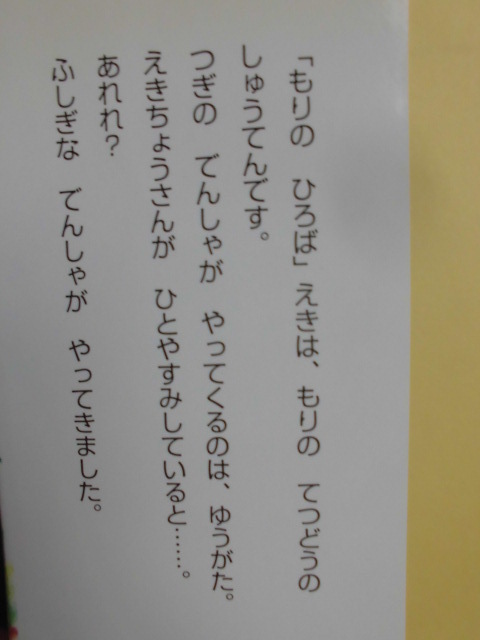 「もりの　ひろば」えきは、もりの　てつどうの
しゅうてんです。
つぎの　でんしゃが　やってくるのは、ゆうがた。
えきちょうさんが　ひとやすみしていると……。
あれれ？
ふしぎな　でんしゃが　やってきました。